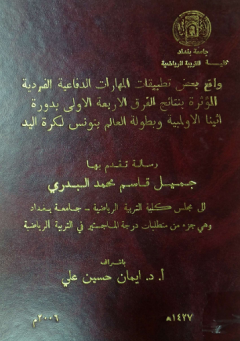 جامعة بغداد
كلية التربية الرياضية
واقع بعض تطبيقات المهارات الدفاعية الفردية
المؤثرة بنتائج الفرق الاربعة الاولى بدورة
اثينا الاولمبية وبطولة العالم بتونس لكرة اليد
رسالة تتقدم بها
جميل قاسم محمد البدري
الى مجلس كلية التربية الرياضية - جامعة بغداد
وهي جزء من متطلبات درجة الماجستير في التربية الرياضية
باشراف
أ.د. ايمان حسين علي
١٤٢٧هـ
٢٠٠٦م